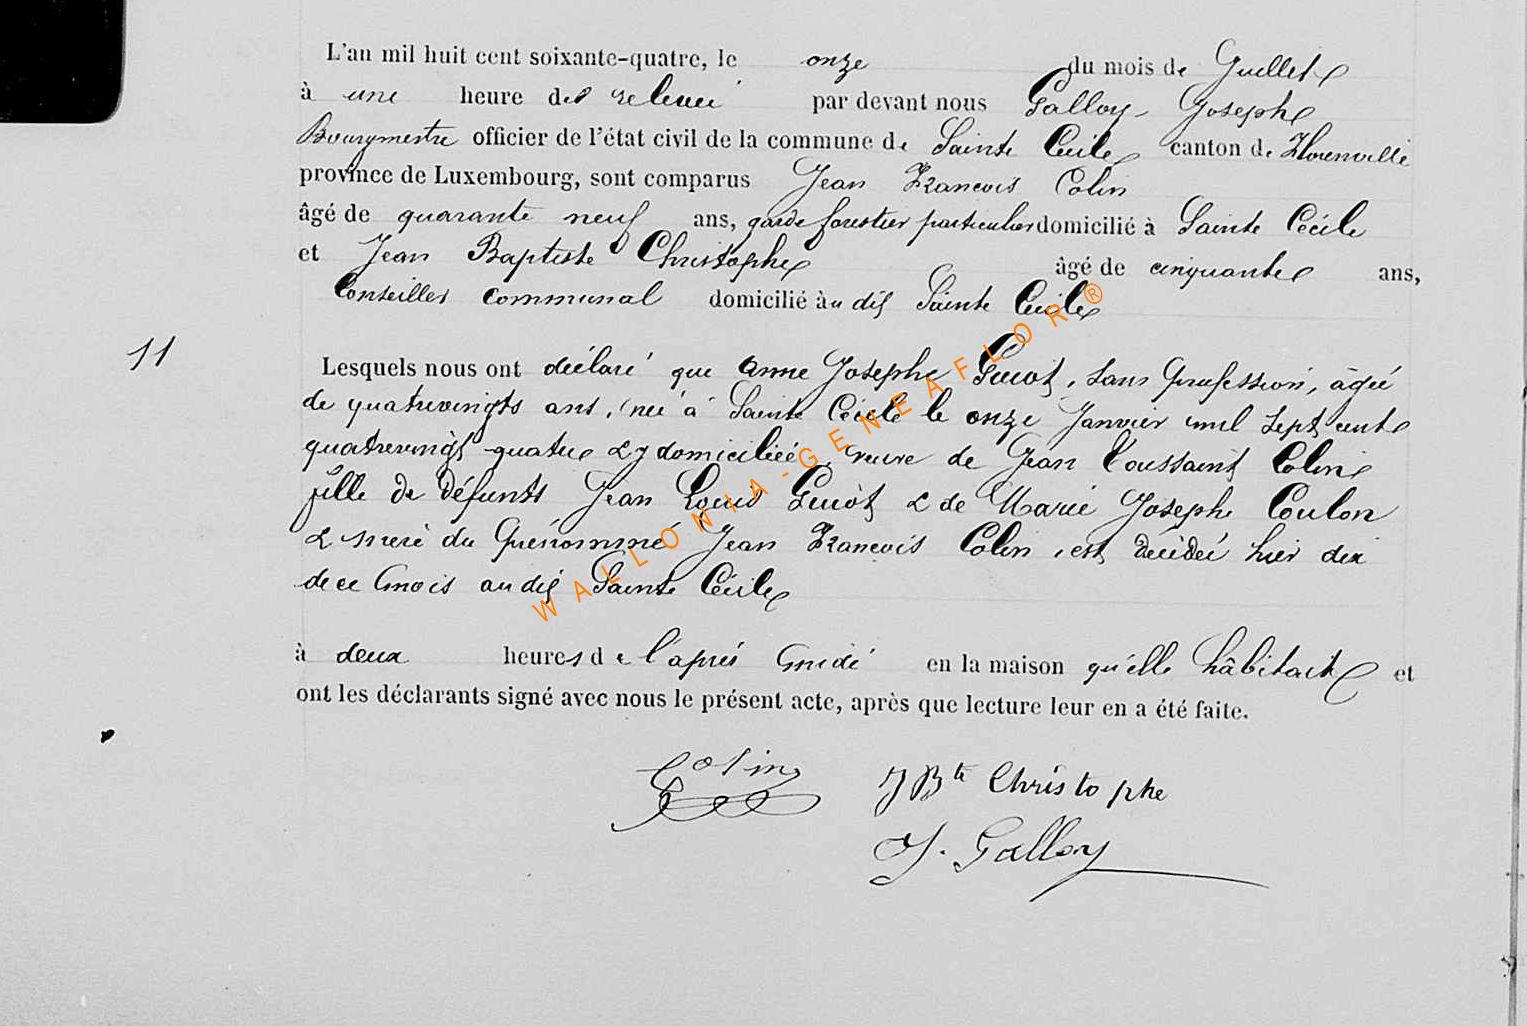 L'an mil huit cent soixante-quatre, le onze du mois de Juillet
à une heure de relevée par devant nous Galloy Joseph
Bourgmestre officier de l'état civil de la commune de Sainte Cécile canton de Florenville
province de Luxembourg, sont comparus Jean François Colin
âgé de quarante neuf ans, garde forestier particulier domicilié à Sainte Cécile
et Jean Baptiste Christophe âgé de cinquante ans,
Conseiller communal domicilié au dit Sainte Cécile
11
Lesquels nous ont déclaré que Anne Josephe Guiot, sans profession, âgée
de quatrevingts ans, née à Sainte Cécile le onze Janvier mil sept cent
quatrevingt quatre & y domiciliée, veuve de Jean Toussaint Colin
fille de défunts Jean Louis Guiot & de Marie Josephe Coulon
& mère du prénommé Jean François Colin, est décédée hier dix
de ce mois au dit Sainte Cécile
à deux heures de l'après midi en la maison qu'elle habitait et
ont les déclarants signé avec nous le présent acte, après que lecture leur en a été faite.
Colin JBte Christophe
J. Galloy
WALLONIA-GENEAFLOR®